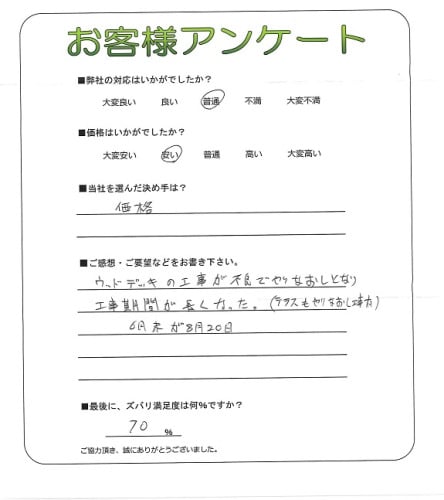 お客様アンケート
■弊社の対応はいかがでしたか？
大変良い 良い 普通 不満 大変不満
■価格はいかがでしたか？
大変安い 安い 普通 高い 大変高い
■当社を選んだ決め手は？
価格
■ご感想・ご要望などをお書き下さい。
ウッドデッキの工事が不良でやりなおしとなり
工事期間が長くなった。(テラスもやりなおし工事有)
6月末が8月20日
■最後に、ズバリ満足度は何%ですか？
70 %
ご協力頂き、誠にありがとうございました。